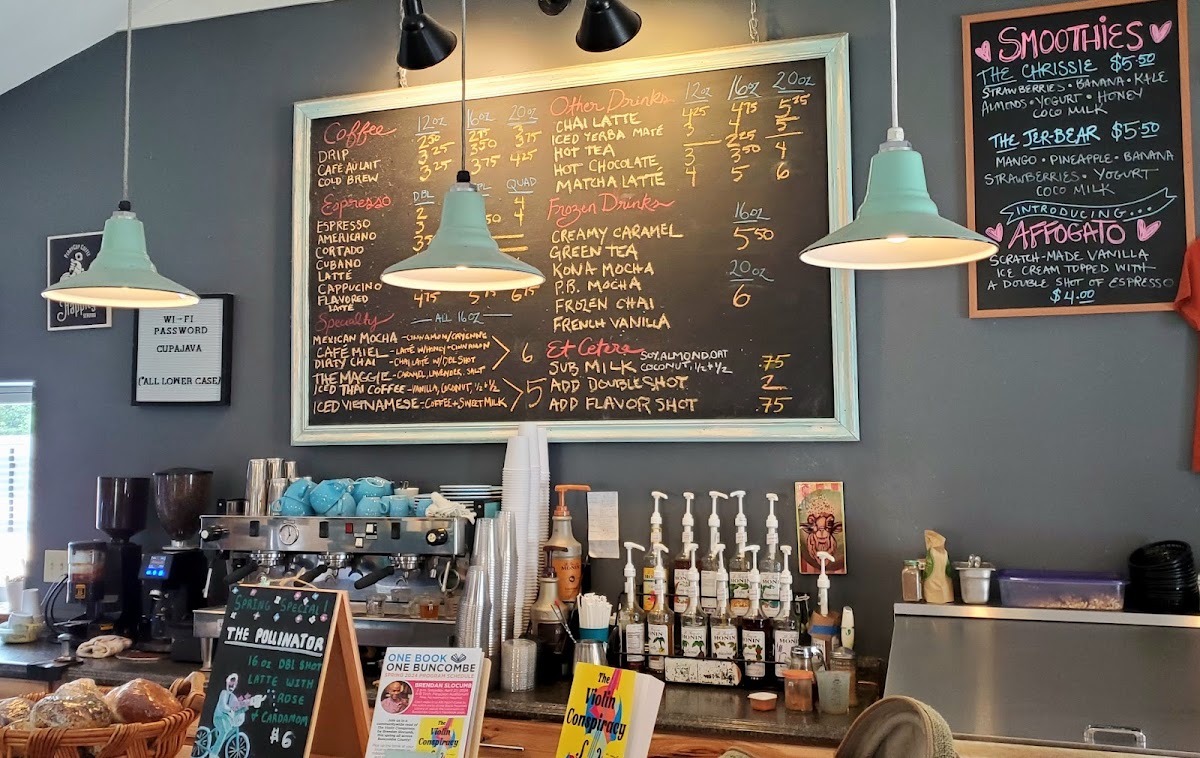 Coffee 12oz 16oz 20oz
DRIP 2.50 2.75 3
CAFÉ AU LAIT 3.25 3.50 3.75
COLD BREW 3.25 3.75 4.25
Espresso DBL QUAD
ESPRESSO 2 4
AMERICANO 2 4
CORTADO 3
CUBANO
LATTÉ
CAPPUCINO
FLAVORED LATTE 4.75 5.75 6.75
Specialty - ALL 16oz -
MEXICAN MOCHA - CINNAMON/CAYENNE
CAFÉ MIEL - LATTÉ W/HONEY + CINNAMON
DIRTY CHAI - CHAI LATTÉ W/DBL SHOT 6
THE MAGGIE - CARAMEL, LAVENDER, SALT
ICED THAI COFFEE - VANILLA, COCONUT, ½+½ 5
ICED VIETNAMESE - COFFEE + SWEET MILK
Other Drinks 12oz 16oz 20oz
CHAI LATTE 4.25 4.75 5.25
ICED YERBA MATÉ 3 4 5
HOT TEA 2.25
HOT CHOCOLATE 3 3.50 4
MATCHA LATTÉ 4 5 6
Frozen Drinks 16oz
CREAMY CARAMEL 5.50
GREEN TEA
KONA MOCHA 20oz
P.B. MOCHA 6
FROZEN CHAI
FRENCH VANILLA
Et Cetera
SUB MILK SOY, ALMOND, OAT .75
COCONUT, ½+½
ADD DOUBLE SHOT 2
ADD FLAVOR SHOT .75
SMOOTHIES
THE CHRISSIE $5.50
STRAWBERRIES • BANANA • KALE
ALMONDS • YOGURT • HONEY
COCO MILK
THE JER-BEAR $5.50
MANGO • PINEAPPLE • BANANA
STRAWBERRIES • YOGURT
COCO MILK
INTRODUCING...
AFFOGATO
SCRATCH-MADE VANILLA
ICE CREAM TOPPED WITH
A DOUBLE SHOT OF ESPRESSO
$4.00
WI-FI
PASSWORD
CUPAJAVA
("ALL LOWER CASE)
SPRING SPECIAL!
THE POLLINATOR
16 OZ DBL SHOT
LATTE WITH
ROSE
+ CARDAMOM
$6
ONE BOOK
ONE BUNCOMBE
SPRING 2024 PROGRAM SCHEDULE
BRENDAN SLOCUMB
The
Violin
Conspiracy
The
Violin
Conspiracy
MONIN
MONIN
MONIN
MONIN